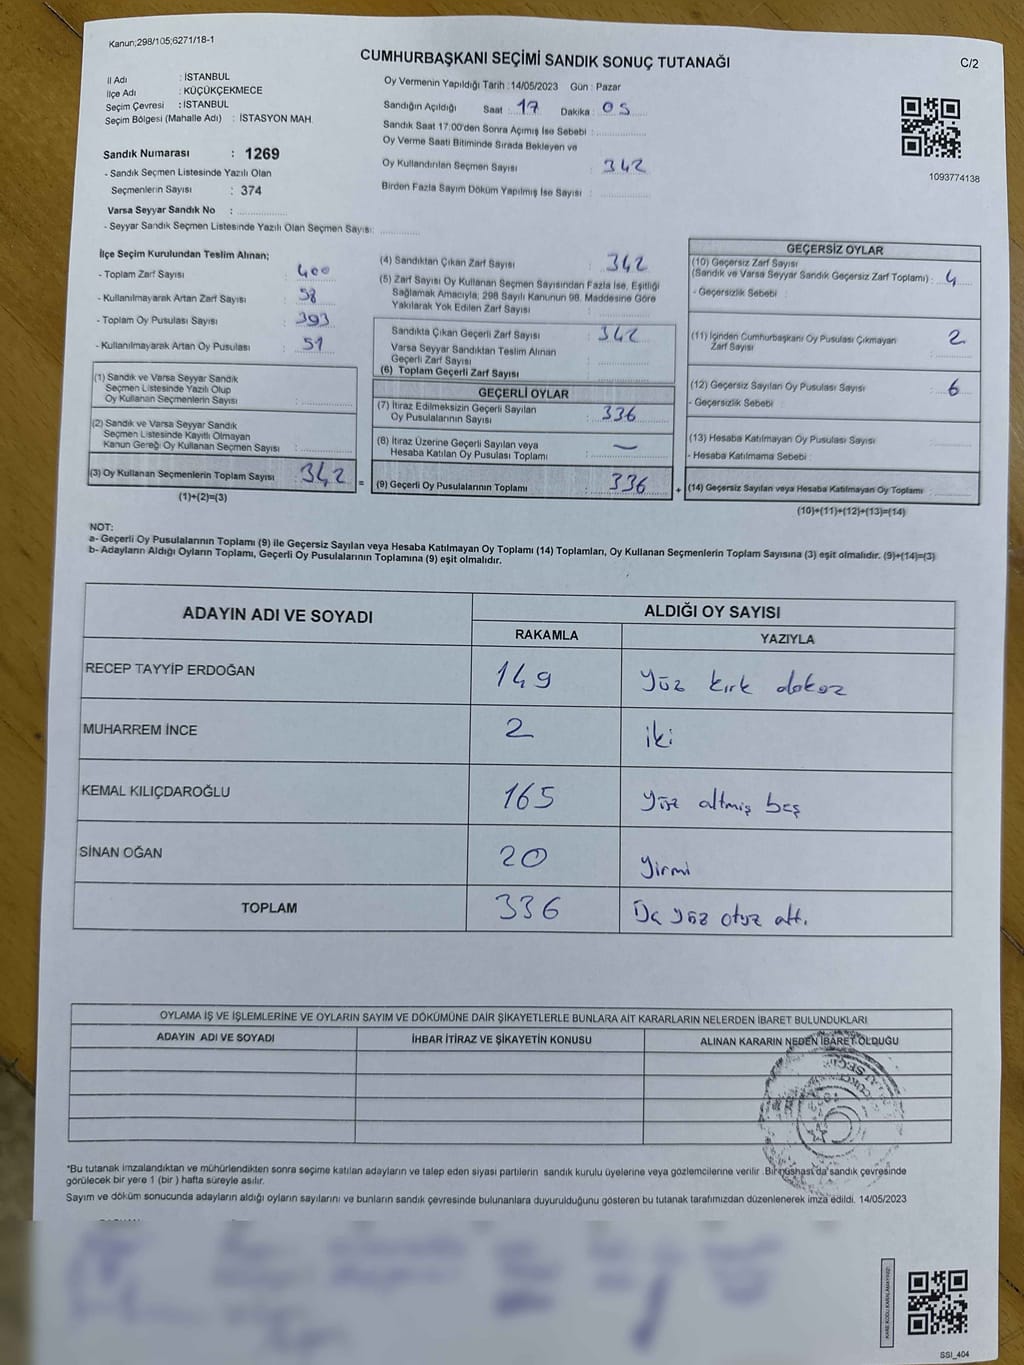 Kanun;298/105;6271/18-1
CUMHURBAŞKANI SEÇİMİ SANDIK SONUÇ TUTANAĞI
C/2
İl Adı : İSTANBUL
İlçe Adı : KÜÇÜKÇEKMECE
Seçim Çevresi : İSTANBUL
Seçim Bölgesi (Mahalle Adı) : İSTASYON MAH.
Sandık Numarası : 1269
- Sandık Seçmen Listesinde Yazılı Olan
Seçmenlerin Sayısı : 374
Varsa Seyyar Sandık No :
- Seyyar Sandık Seçmen Listesinde Yazılı Olan Seçmen Sayısı:
Oy Vermenin Yapıldığı Tarih : 14/05/2023 Gün : Pazar
Sandığın Açıldığı Saat : 17 Dakika : 05
Sandık Saat 17:00'den Sonra Açımış İse Sebebi :
Oy Verme Saati Bitiminde Sırada Bekleyen ve
Oy Kullandırılan Seçmen Sayısı : 342
Birden Fazla Sayım Döküm Yapılmış İse Sayısı :
1093774138
İlçe Seçim Kurulundan Teslim Alınan;
- Toplam Zarf Sayısı : 400
- Kullanılmayarak Artan Zarf Sayısı : 58
- Toplam Oy Pusulası Sayısı : 393
- Kullanılmayarak Artan Oy Pusulası : 51
(1) Sandık ve Varsa Seyyar Sandık
Seçmen Listesinde Yazılı Olup
Oy Kullanan Seçmenlerin Sayısı :
(2) Sandık ve Varsa Seyyar Sandık
Seçmen Listesinde Kayıtlı Olmayan
Kanun Gereği Oy Kullanan Seçmen Sayısı :
(3) Oy Kullanan Seçmenlerin Toplam Sayısı : 342 =
(1)+(2)=(3)
(4) Sandıktan Çıkan Zarf Sayısı : 342
(5) Zarf Sayısı Oy Kullanan Seçmen Sayısından Fazla İse, Eşitliği
Sağlamak Amacıyla; 298 Sayılı Kanunun 98. Maddesine Göre
Yakılarak Yok Edilen Zarf Sayısı :
Sandıkta Çıkan Geçerli Zarf Sayısı : 342
Varsa Seyyar Sandıktan Teslim Alınan
Geçerli Zarf Sayısı :
(6) Toplam Geçerli Zarf Sayısı
GEÇERLİ OYLAR
(7) İtiraz Edilmeksizin Geçerli Sayılan
Oy Pusulalarının Sayısı : 336
(8) İtiraz Üzerine Geçerli Sayılan veya
Hesaba Katılan Oy Pusulası Toplamı : —
(9) Geçerli Oy Pusulalarının Toplamı : 336 +
GEÇERSİZ OYLAR
(10) Geçersiz Zarf Sayısı
(Sandık ve Varsa Seyyar Sandık Geçersiz Zarf Toplamı) : 4
- Geçersizlik Sebebi :
(11) İçinden Cumhurbaşkanı Oy Pusulası Çıkmayan 2
Zarf Sayısı :
(12) Geçersiz Sayılan Oy Pusulası Sayısı : 6
- Geçersizlik Sebebi :
(13) Hesaba Katılmayan Oy Pusulası Sayısı :
- Hesaba Katılmama Sebebi :
(14) Geçersiz Sayılan veya Hesaba Katılmayan Oy Toplamı :
(10)+(11)+(12)+(13)=(14)
NOT:
a- Geçerli Oy Pusulalarının Toplamı (9) ile Geçersiz Sayılan veya Hesaba Katılmayan Oy Toplamı (14) Toplamları, Oy Kullanan Seçmenlerin Toplam Sayısına (3) eşit olmalıdır. (9)+(14)=(3)
b- Adayların Aldığı Oyların Toplamı, Geçerli Oy Pusulalarının Toplamına (9) eşit olmalıdır.
ADAYIN ADI VE SOYADI ALDIĞI OY SAYISI
RAKAMLA YAZIYLA
RECEP TAYYİP ERDOĞAN 149 Yüz kırk dokoz
MUHARREM İNCE 2 iki
KEMAL KILIÇDAROĞLU 165 Yüz altmış beş
SİNAN OĞAN 20 Yirmi
TOPLAM 336 Üç yüz otuz altı
OYLAMA İŞ VE İŞLEMLERİNE VE OYLARIN SAYIM VE DÖKÜMÜNE DAİR ŞİKAYETLERLE BUNLARA AİT KARARLARIN NELERDEN İBARET BULUNDUKLARI
ADAYIN ADI VE SOYADI İHBAR İTİRAZ VE ŞİKAYETİN KONUSU ALINAN KARARIN NEDEN İBARET OLDUĞU
*Bu tutanak imzalandıktan ve mühürlendikten sonra seçime katılan adayların ve talep eden siyasi partilerin sandık kurulu üyelerine veya gözlemcilerine verilir. Bir nüshası da sandık çevresinde
görülecek bir yere 1 (bir) hafta süreyle asılır.
Sayım ve döküm sonucunda adayların aldığı oyların sayılarını ve bunların sandık çevresinde bulunanlara duyurulduğunu gösteren bu tutanak tarafımızdan düzenlenerek imza edildi. 14/05/2023
SSI_404